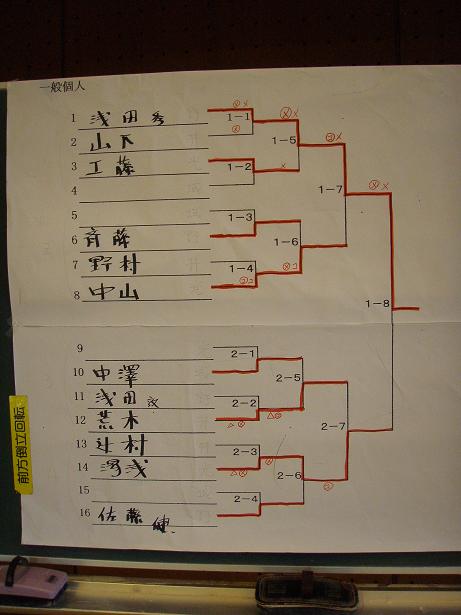 一般個人
1 浅田 秀
1-1
2 山下
1-5
3 工藤
1-2
4
1-7
5
1-3
6 斉藤
1-6
7 野村
1-4
8 中山
1-8
9
2-1
10 中澤
2-5
11 浅田
2-2
12 荒木
2-7
13 辻村
2-3
14 湯浅
2-6
15
2-4
16 佐藤 健
前方倒立回転